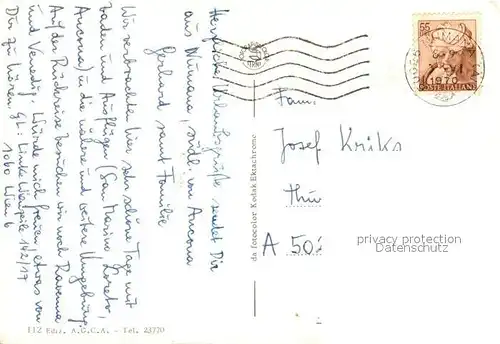 Herzliche Urlaubsgrüße sendet Dir
aus Numana, südl. von Ancona
Gerhard samt Familie
Wir verbrachten hier sehr schöne Tage mit
baden und Ausflügen (San Marino, Loreto,
Ancona) in die nähere und weitere Umgebung.
Auf der Rückreise besuchen wir noch Ravenna
und Venedig. Würde mich freuen, etwas von
Dir zu hören. GL: Linke Wienzeile 142/17
1060 Wien 6
112 Ediz. A.G.C.A. - Tel. 23770
da fotocolor Kodak Ektachrome
55
1970
POSTE ITALIANE
Fam.
Josef Kriks
Thu
A 502
privacy protection
Datenschutz